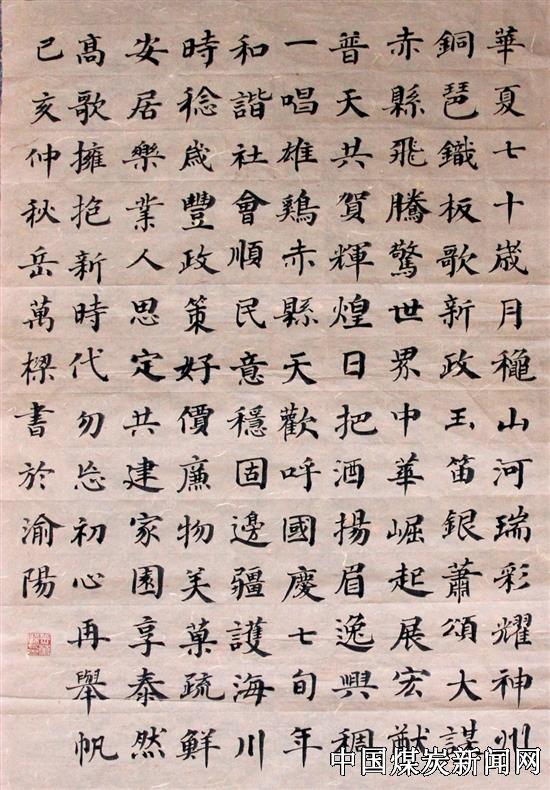 華夏七十歲月穐山河瑞彩耀神州
銅琶鐵板歌新政玉笛銀蕭頌大謀
赤縣飛騰驚世界中華崛起展宏猷
普天共賀輝煌日把酒揚眉逸興稠
一唱雄鷄赤縣天歡呼國慶七旬年
和諧社會順民意穩固邊疆護海川
時稔歲豐政策好價廉物美菓疏鮮
安居樂業人思定共建家園享泰然
髙歌擁抱新時代勿忘初心再舉帆
己亥仲秋岳萬樑書於渝陽
中国煤炭新闻网